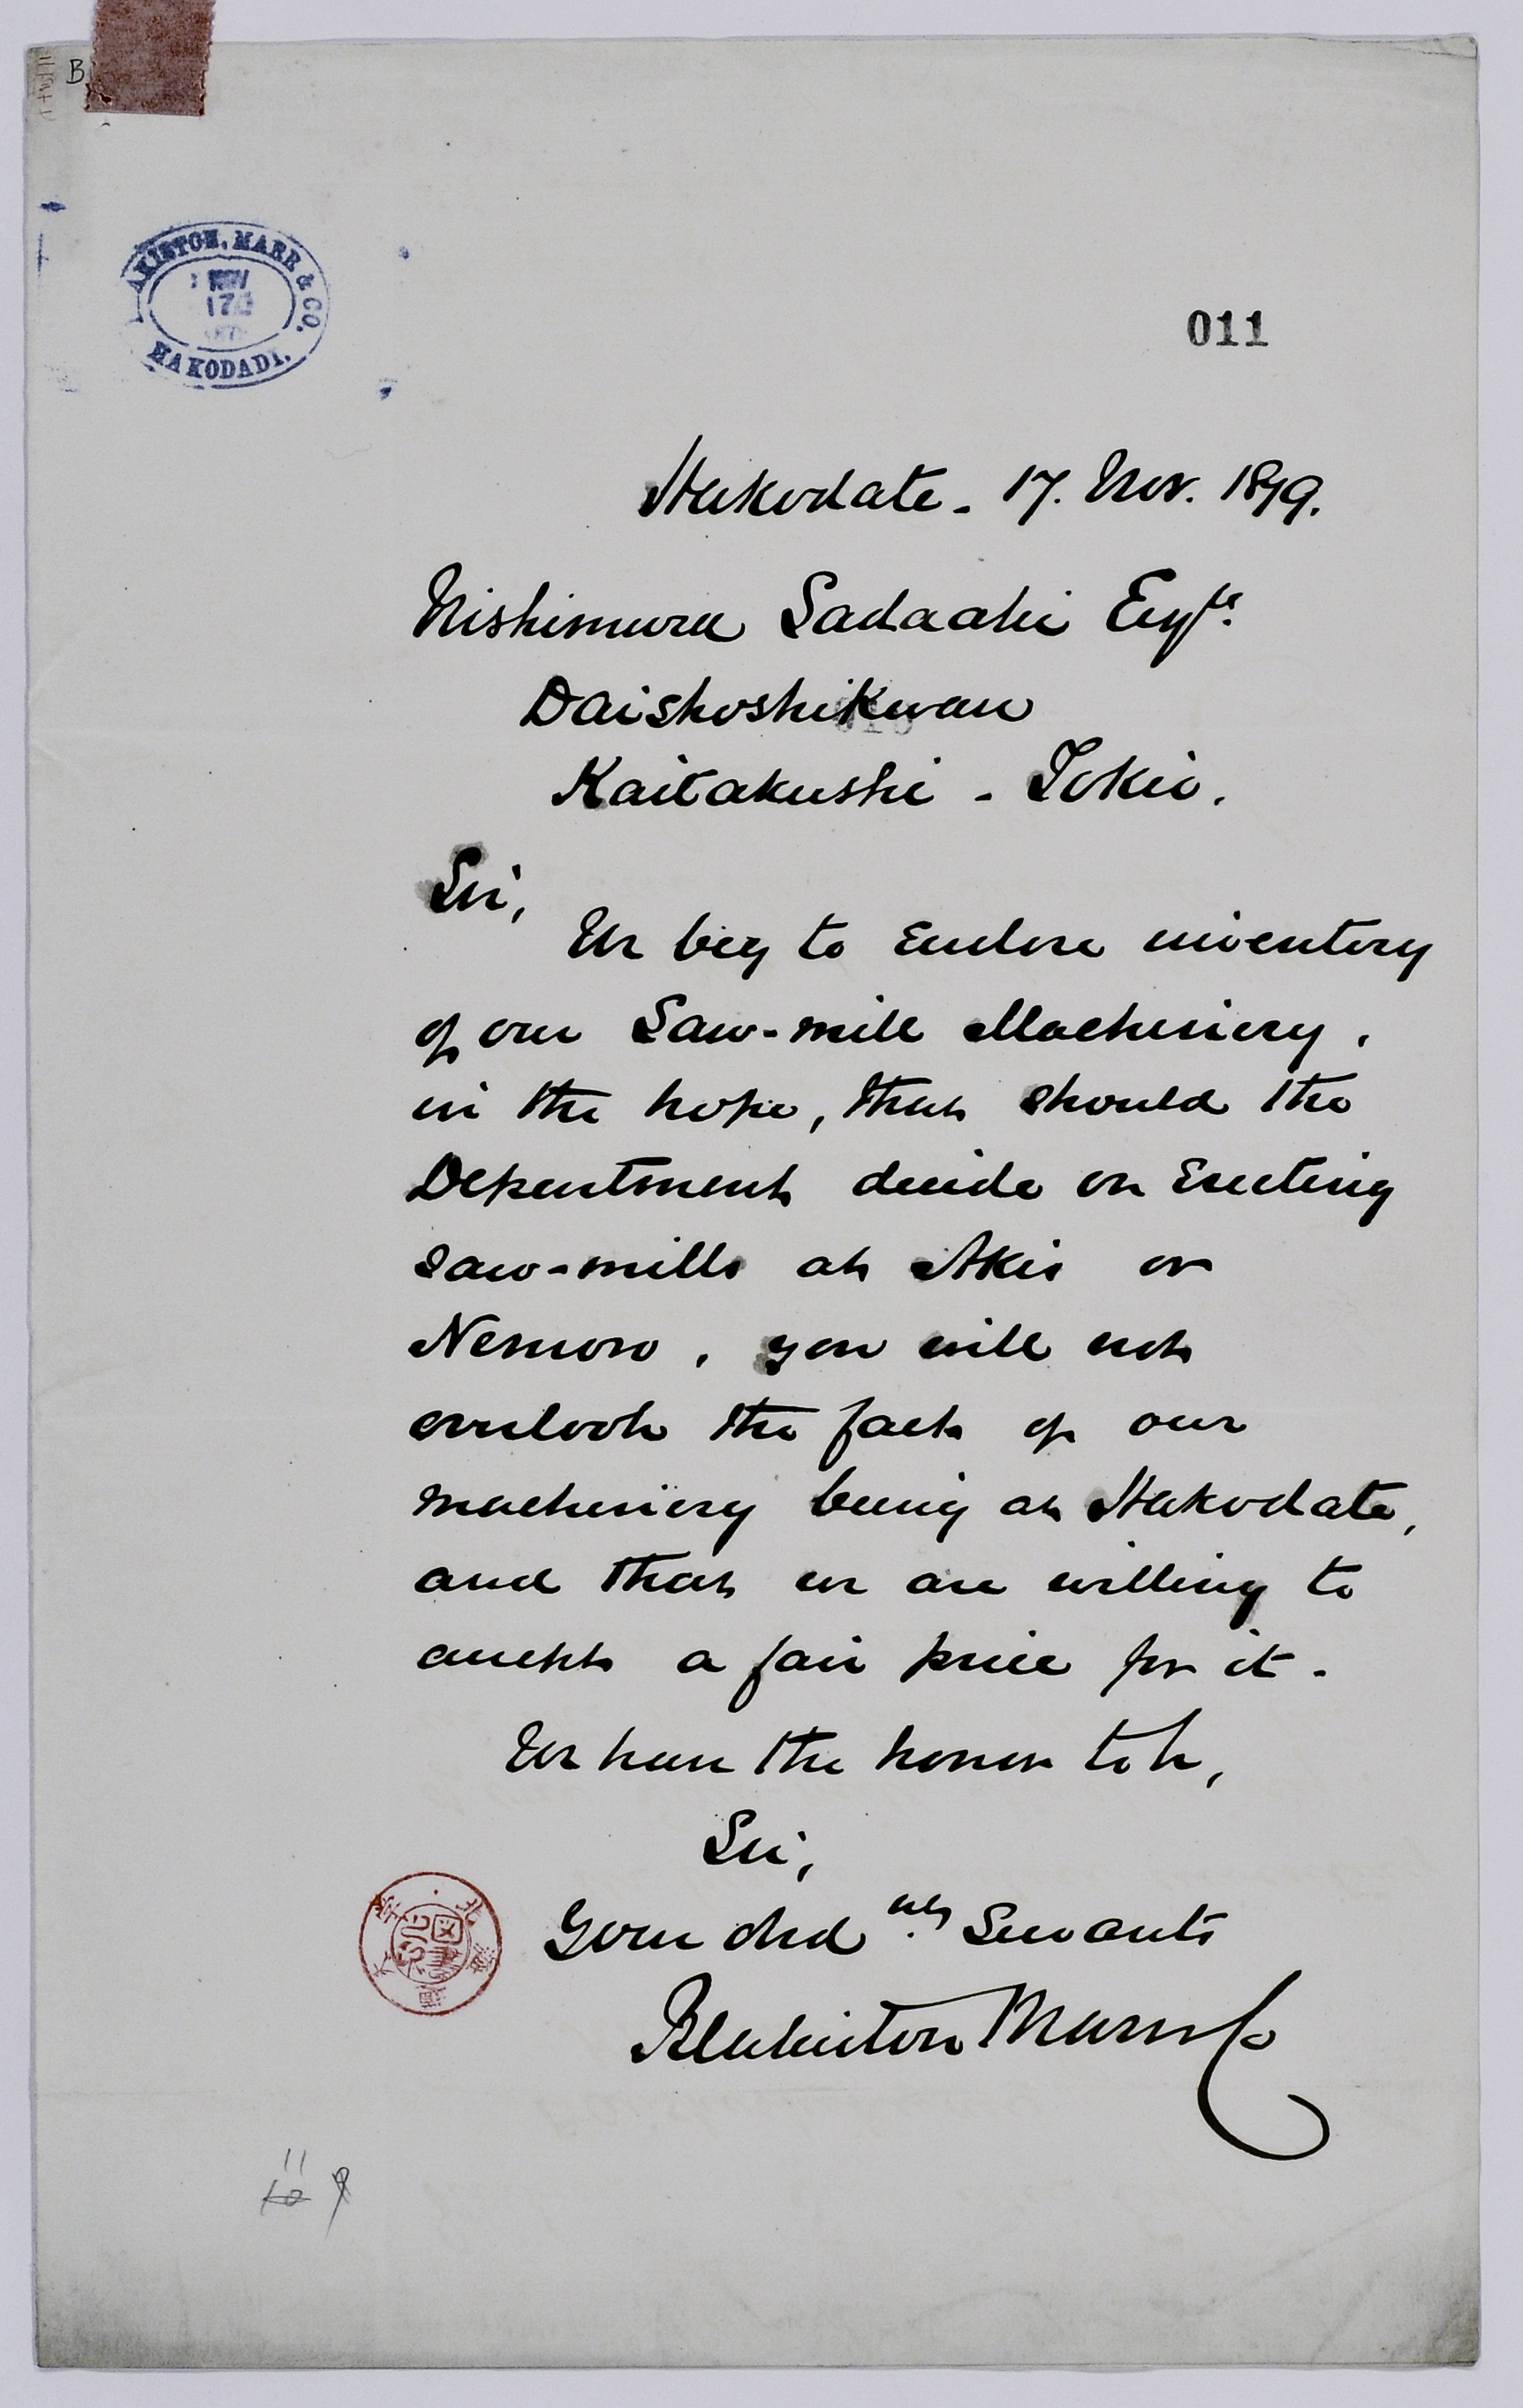 B
AKISTON, MARR & CO.
NOV
17
HAKODADI.
011
Hakodate - 17. Nov. 1879.
Nishimura Sadaaki Esqre.
Daishoshikwan
Kaitakushi - Tokio.
Sir,
We beg to enclose inventory
of our Saw-mill Machinery,
in the hope, that should the
Department decide on Erecting
saw-mills at Akis or
Nemoro, you will not
overlook the fact of our
machinery being at Hakodate,
and that we are willing to
accept a fair price for it.
We have the honor to be,
Sir,
Your obed nt. Servants
Blakiston Marr & Co
北海道大學
図書
11
10